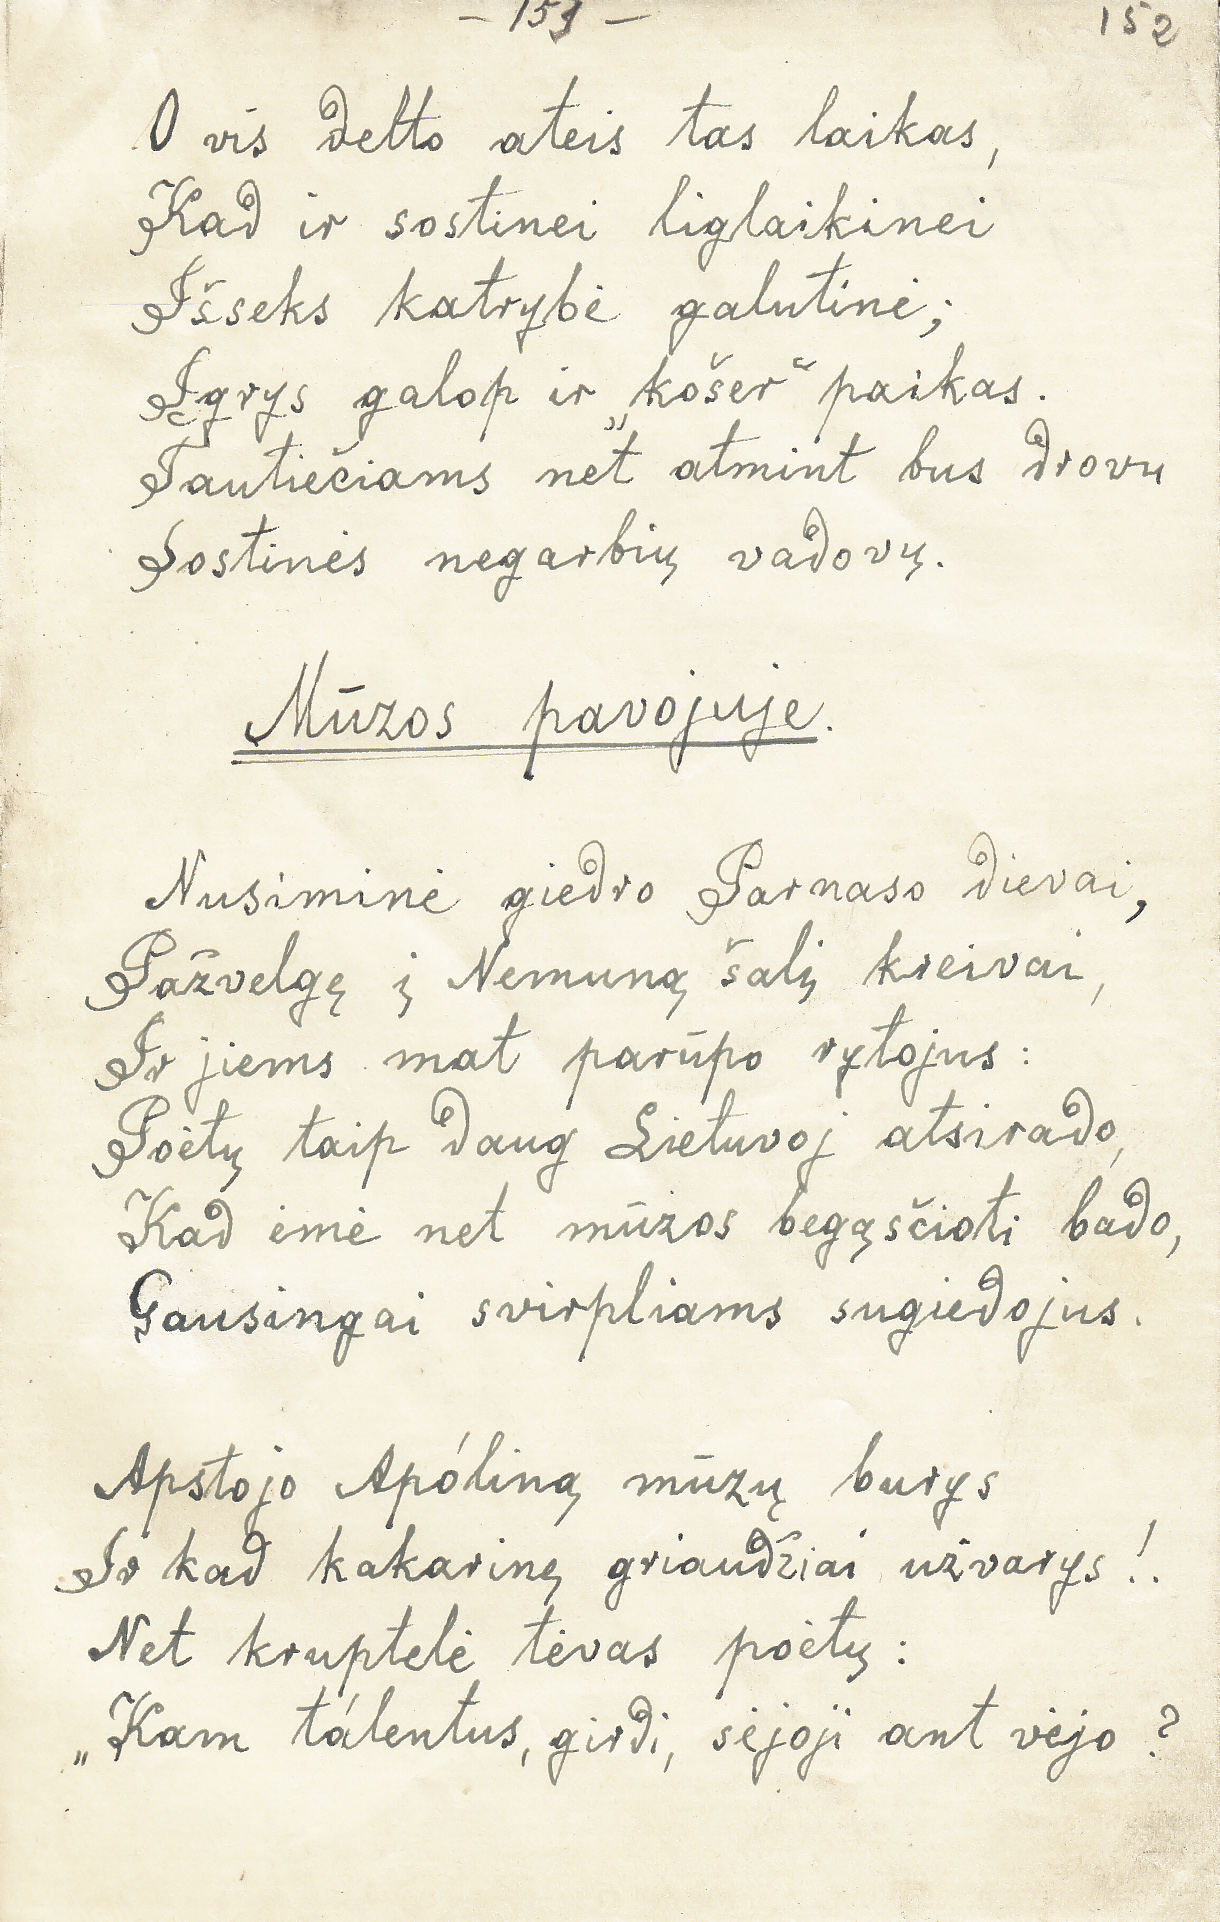 – 153 –
152
O vis delto ateis tas laikas,
Kad ir sostinei liglaikinei
Išseks katrybė galutinė;
Įgrys galop ir „košer“ paikas.
Tautiečiams net atmint bus drovu
Sostinės negarbių vadovų.
Mūzos pavojuje.
Nusiminė giedro Parnaso dievai,
Pažvelgę į Nemuną šalį kreivai,
Ir jiems mat parūpo rytojus:
Poėtų taip daug Lietuvoj atsirado,
Kad ėmė net mūzos begąsčioti bado,
Gausingai svirpliams sugiedojus.
Apstojo Apóliną mūzų burys
Ir kad kakarinę griaudžiai užvarys!.
Net kruptelė tėvas poėtų:
„Kam tálentus, girdi, sėjoji ant vėjo?